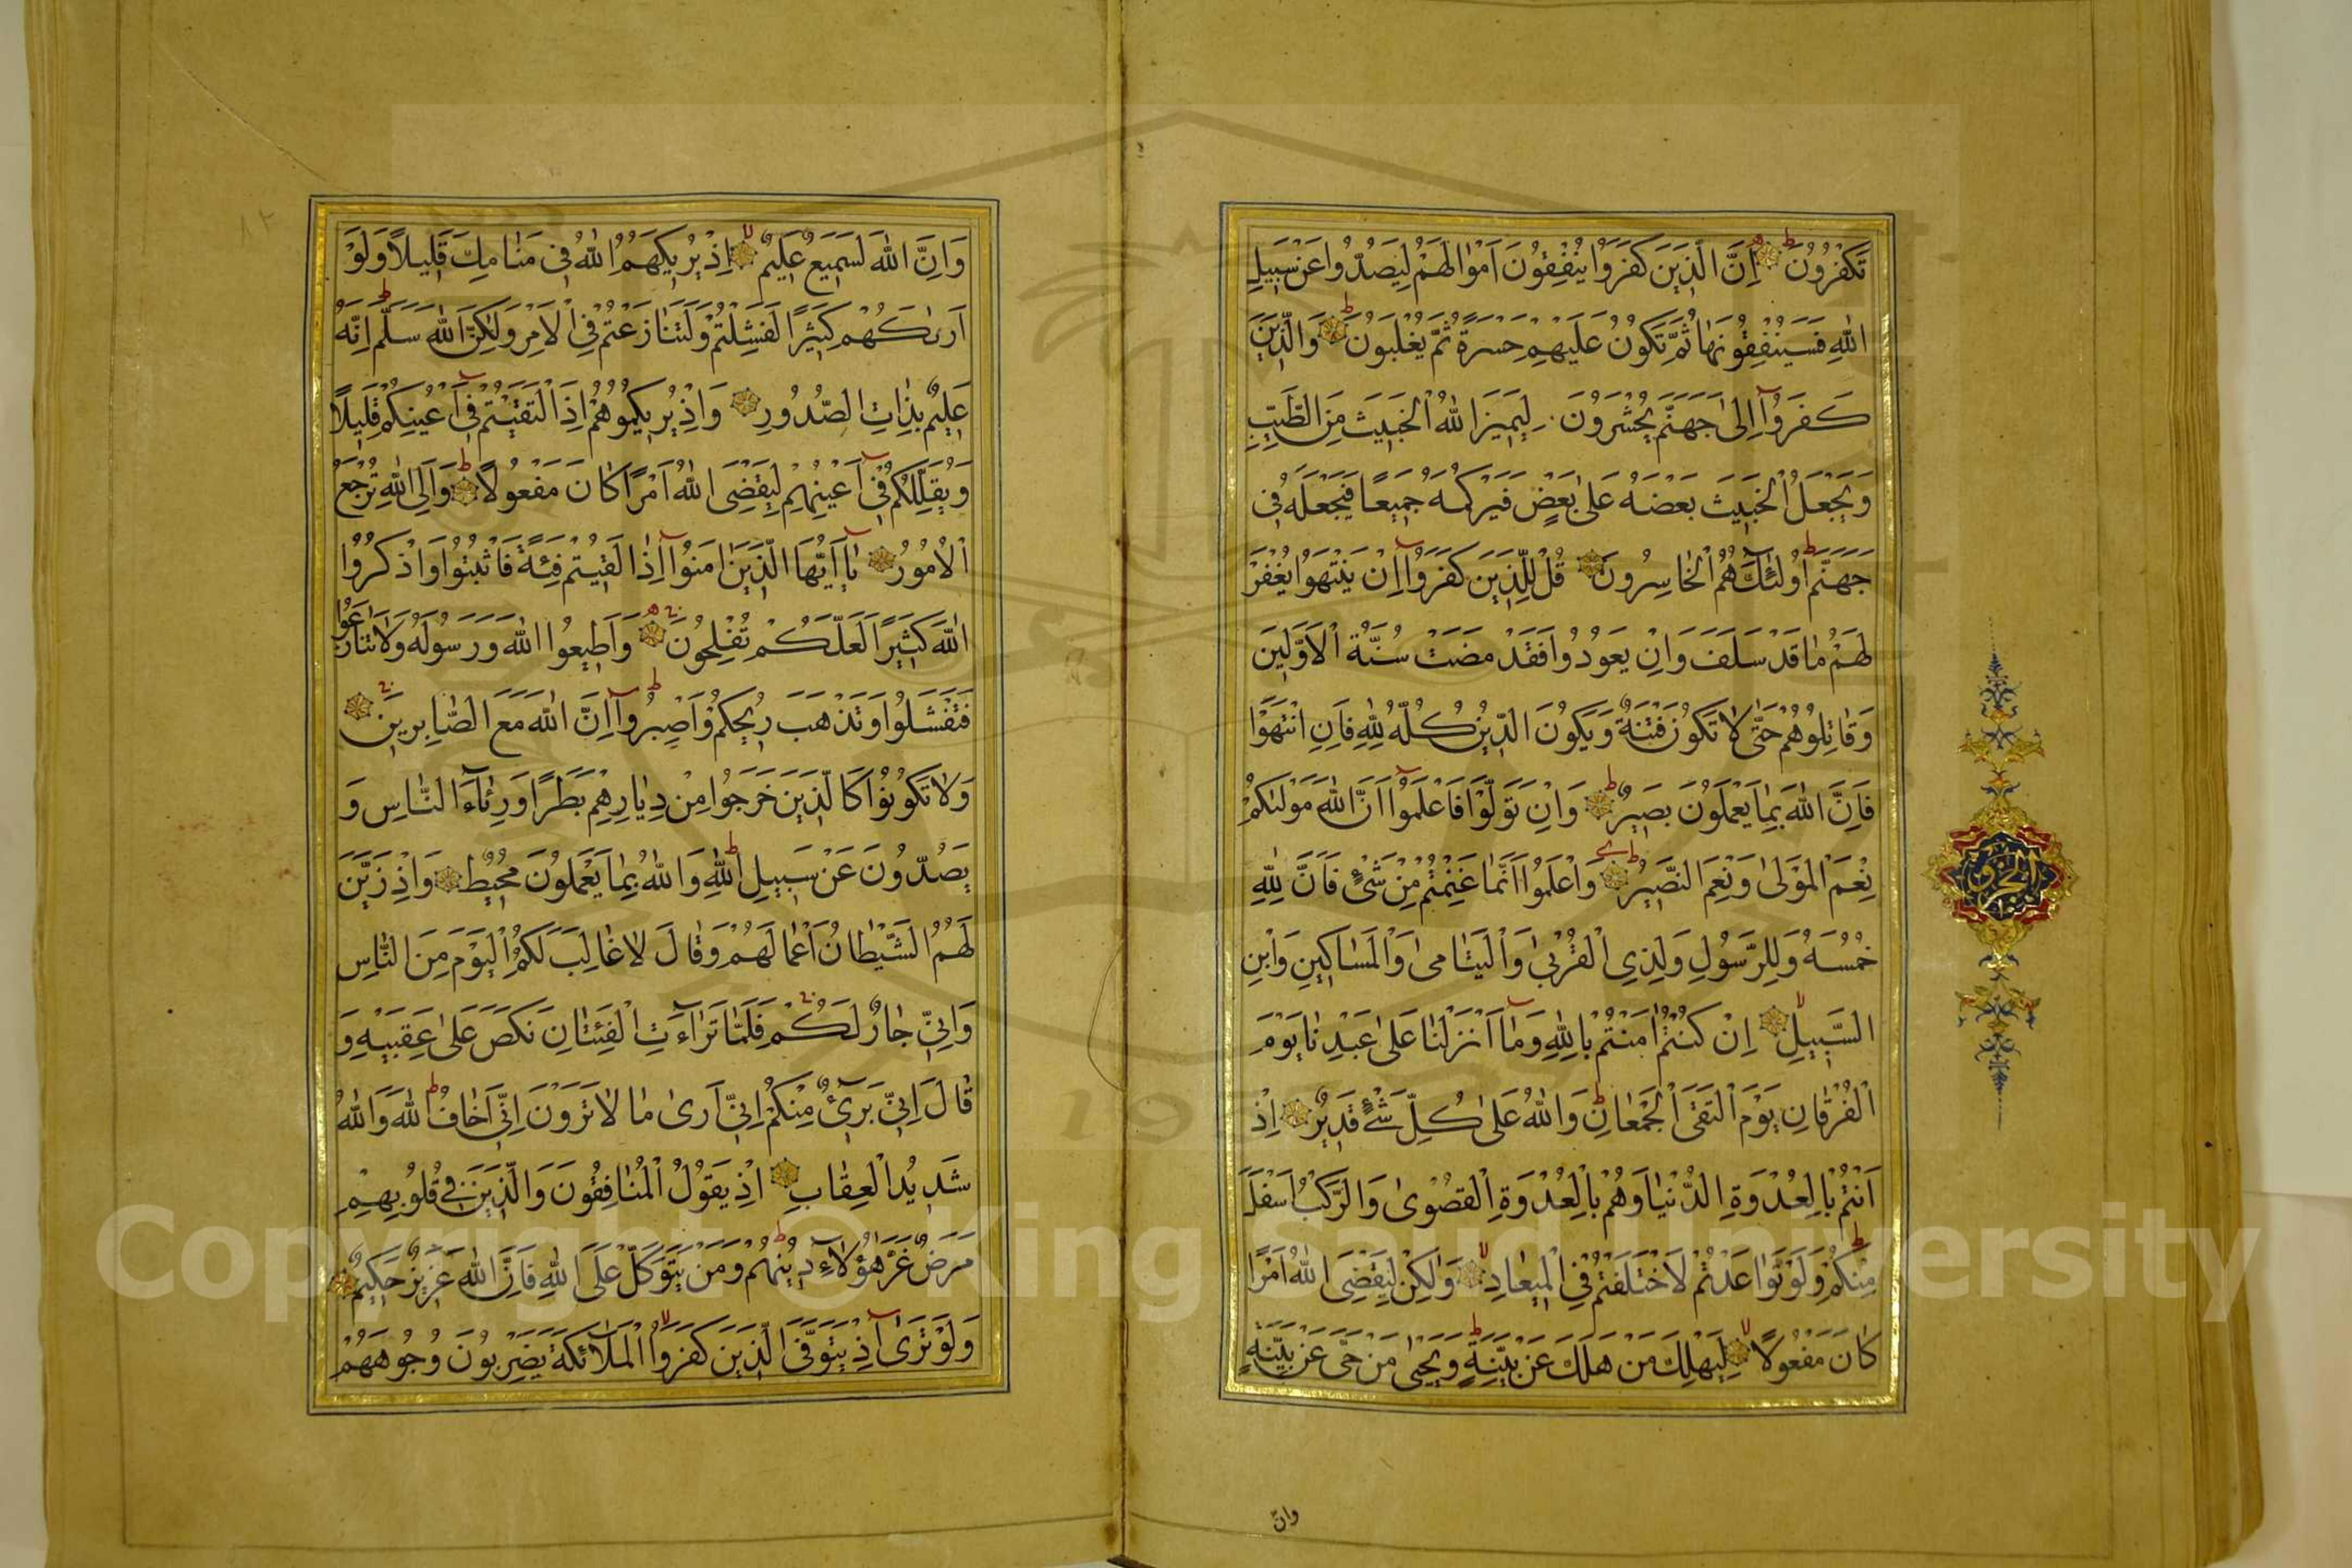 تَكْفُرُونَ اِنَّ الَّذِينَ كَفَرُوا يُنْفِقُونَ اَمْوَالَهُمْ لِيَصُدُّوا عَنْ سَبِيلِ
اللّٰهِ فَسَيُنْفِقُونَهَا ثُمَّ تَكُونُ عَلَيْهِمْ حَسْرَةً ثُمَّ يُغْلَبُونَ وَالَّذِينَ
كَفَرُوا اِلىٰ جَهَنَّمَ يُحْشَرُونَ لِيَمِيزَ اللّٰهُ الْخَبِيثَ مِنَ الطَّيِّبِ
وَيَجْعَلَ الْخَبِيثَ بَعْضَهُ عَلىٰ بَعْضٍ فَيَرْكُمَهُ جَمِيعًا فَيَجْعَلَهُ فِي
جَهَنَّمَ اُولٰئِكَ هُمُ الْخَاسِرُونَ قُلْ لِلَّذِينَ كَفَرُوا اِنْ يَنْتَهُوا يُغْفَرْ
لَهُمْ مَا قَدْ سَلَفَ وَاِنْ يَعُودُوا فَقَدْ مَضَتْ سُنَّةُ الْاَوَّلِينَ
وَقَاتِلُوهُمْ حَتّٰى لَا تَكُونَ فِتْنَةٌ وَيَكُونَ الدِّينُ كُلُّهُ لِلّٰهِ فَاِنِ انْتَهَوْا
فَاِنَّ اللّٰهَ بِمَا يَعْمَلُونَ بَصِيرٌ وَاِنْ تَوَلَّوْا فَاعْلَمُوا اَنَّ اللّٰهَ مَوْلٰيكُمْ
نِعْمَ الْمَوْلىٰ وَنِعْمَ النَّصِيرُ وَاعْلَمُوا اَنَّمَا غَنِمْتُمْ مِنْ شَيْءٍ فَاَنَّ لِلّٰهِ
خُمُسَهُ وَلِلرَّسُولِ وَلِذِي الْقُرْبىٰ وَالْيَتَامىٰ وَالْمَسَاكِينِ وَابْنِ
السَّبِيلِ اِنْ كُنْتُمْ اٰمَنْتُمْ بِاللّٰهِ وَمَا اَنْزَلْنَا عَلىٰ عَبْدِنَا يَوْمَ
الْفُرْقَانِ يَوْمَ الْتَقَى الْجَمْعَانِ وَاللّٰهُ عَلىٰ كُلِّ شَيْءٍ قَدِيرٌ اِذْ
اَنْتُمْ بِالْعُدْوَةِ الدُّنْيَا وَهُمْ بِالْعُدْوَةِ الْقُصْوىٰ وَالرَّكْبُ اَسْفَلَ
مِنْكُمْ وَلَوْ تَوَاعَدْتُمْ لَاخْتَلَفْتُمْ فِي الْمِيعَادِ وَلٰكِنْ لِيَقْضِيَ اللّٰهُ اَمْرًا
كَانَ مَفْعُولًا لِيَهْلِكَ مَنْ هَلَكَ عَنْ بَيِّنَةٍ وَيَحْيىٰ مَنْ حَيَّ عَنْ بَيِّنَةٍ
وان
الجزو
وَاِنَّ اللّٰهَ لَسَمِيعٌ عَلِيمٌ اِذْ يُرِيكَهُمُ اللّٰهُ فِي مَنَامِكَ قَلِيلًا وَلَوْ
اَرٰيكَهُمْ كَثِيرًا لَفَشِلْتُمْ وَلَتَنَازَعْتُمْ فِي الْاَمْرِ وَلٰكِنَّ اللّٰهَ سَلَّمَ اِنَّهُ
عَلِيمٌ بِذَاتِ الصُّدُورِ وَاِذْ يُرِيكُمُوهُمْ اِذِ الْتَقَيْتُمْ فِي اَعْيُنِكُمْ قَلِيلًا
وَيُقَلِّلُكُمْ فِي اَعْيُنِهِمْ لِيَقْضِيَ اللّٰهُ اَمْرًا كَانَ مَفْعُولًا وَاِلَى اللّٰهِ تُرْجَعُ
الْاُمُورُ يَا اَيُّهَا الَّذِينَ اٰمَنُوا اِذَا لَقِيتُمْ فِئَةً فَاثْبُتُوا وَاذْكُرُوا
اللّٰهَ كَثِيرًا لَعَلَّكُمْ تُفْلِحُونَ وَاَطِيعُوا اللّٰهَ وَرَسُولَهُ وَلَا تَنَازَعُوا
فَتَفْشَلُوا وَتَذْهَبَ رِيحُكُمْ وَاصْبِرُوا اِنَّ اللّٰهَ مَعَ الصَّابِرِينَ
وَلَا تَكُونُوا كَالَّذِينَ خَرَجُوا مِنْ دِيَارِهِمْ بَطَرًا وَرِئَاءَ النَّاسِ وَ
يَصُدُّونَ عَنْ سَبِيلِ اللّٰهِ وَاللّٰهُ بِمَا يَعْمَلُونَ مُحِيطٌ وَاِذْ زَيَّنَ
لَهُمُ الشَّيْطَانُ اَعْمَالَهُمْ وَقَالَ لَا غَالِبَ لَكُمُ الْيَوْمَ مِنَ النَّاسِ
وَاِنِّي جَارٌ لَكُمْ فَلَمَّا تَرَاءَتِ الْفِئَتَانِ نَكَصَ عَلىٰ عَقِبَيْهِ وَ
قَالَ اِنِّي بَرِيءٌ مِنْكُمْ اِنِّي اَرىٰ مَا لَا تَرَوْنَ اِنِّي اَخَافُ اللّٰهَ وَاللّٰهُ
شَدِيدُ الْعِقَابِ اِذْ يَقُولُ الْمُنَافِقُونَ وَالَّذِينَ فِي قُلُوبِهِمْ
مَرَضٌ غَرَّ هٰؤُلَاءِ دِينُهُمْ وَمَنْ يَتَوَكَّلْ عَلَى اللّٰهِ فَاِنَّ اللّٰهَ عَزِيزٌ حَكِيمٌ
وَلَوْ تَرىٰ اِذْ يَتَوَفَّى الَّذِينَ كَفَرُوا الْمَلَائِكَةُ يَضْرِبُونَ وُجُوهَهُمْ
٨٢
Copyright © King Saud University